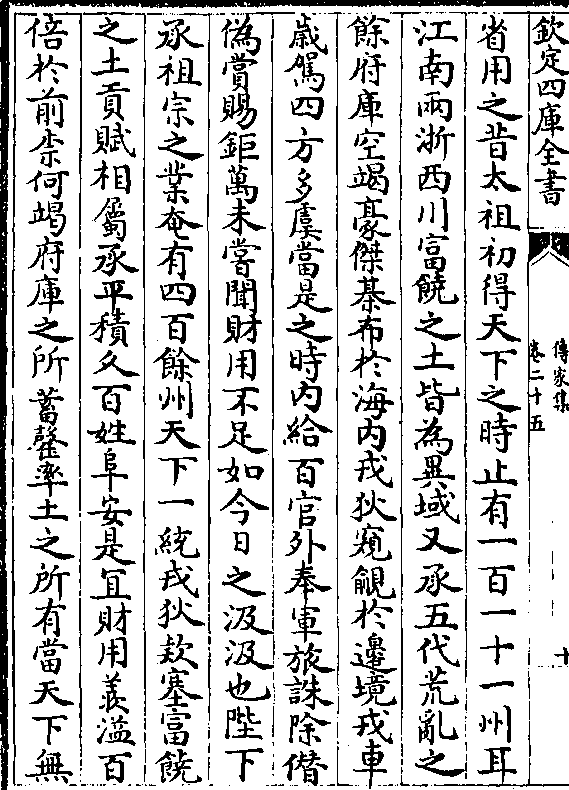 欽定四庫全書
傳家集
卷二十五
十
省用之昔太祖初得天下之時止有一百一十一州耳
江南兩浙西川富饒之土皆為異域又承五代荒亂之
餘府庫空竭豪傑棊布於海内戎狄窺覦於邊境戎車
歳駕四方多虞當是之時内給百官外奉軍旅誅除僭
偽賞賜鉅萬未嘗聞財用不足如今日之汲汲也陛下
承祖宗之業奄有四百餘州天下一統戎狄欵塞富饒
之土貢賦相屬承平積久百姓阜安是宜財用羨溢百
倍於前柰何竭府庫之所蓄罄率土之所有當天下無